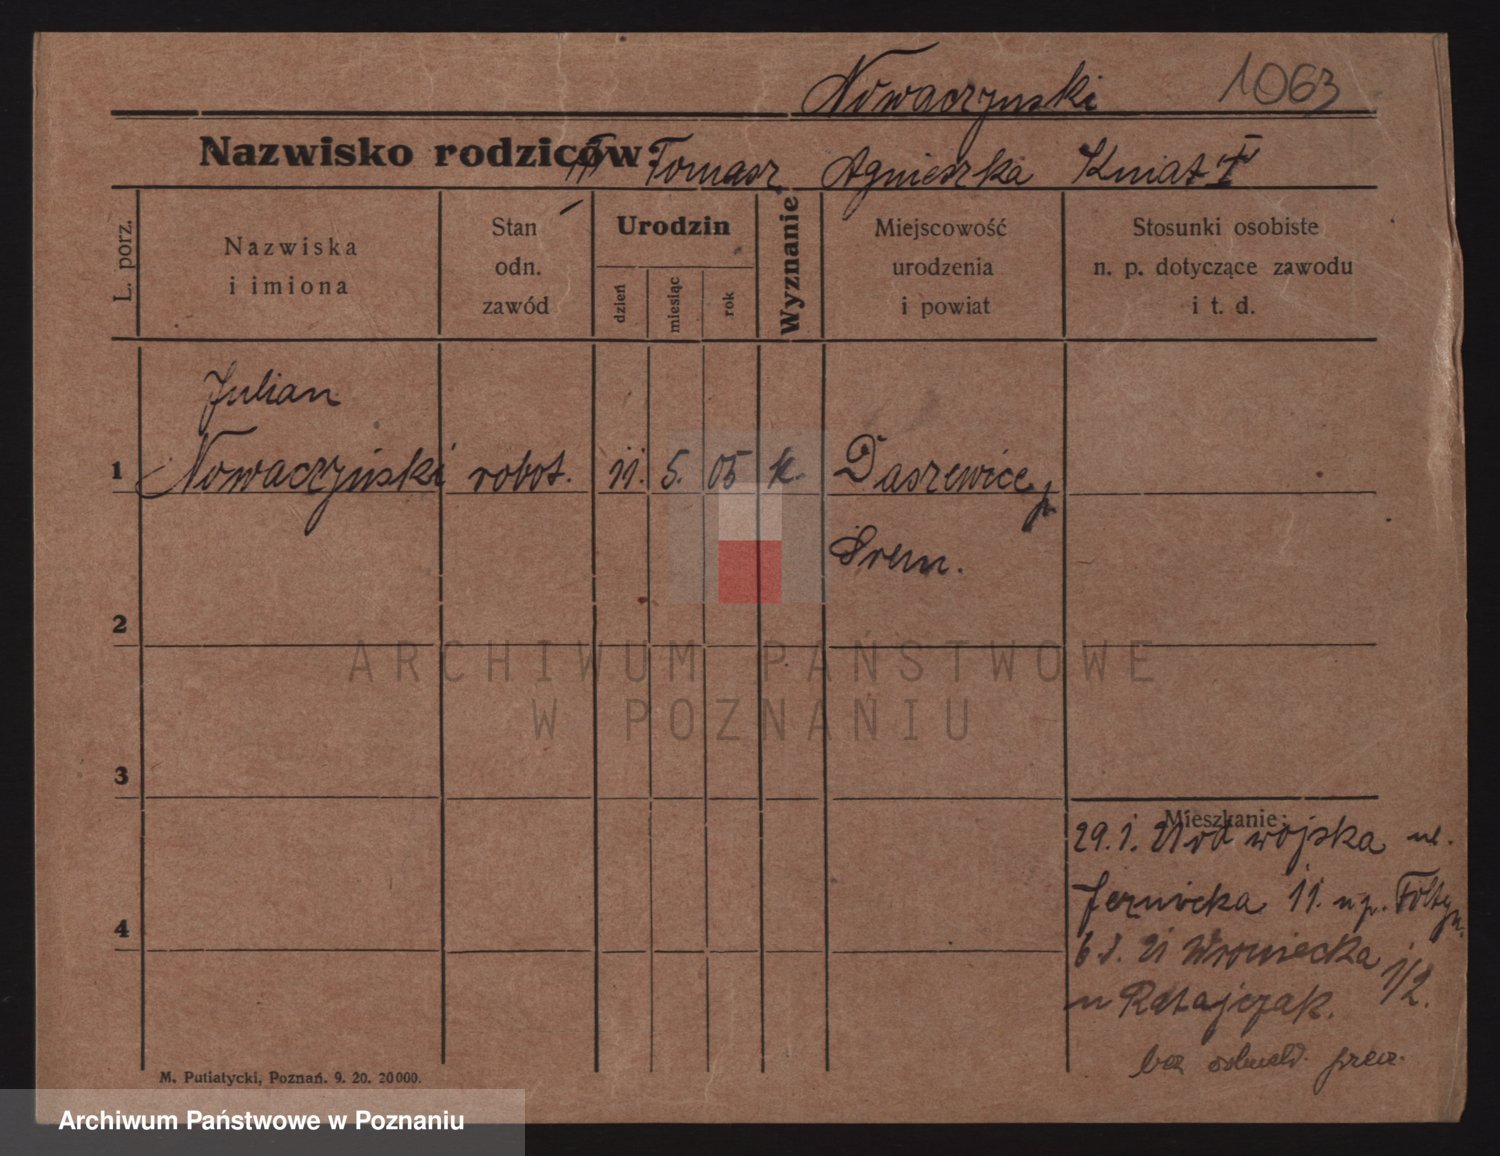 Nowaczyński 1063
Nazwisko rodziców: Tomasz Agnieszka Kmiat
L. porz.
Nazwiska
i imiona
Stan
odn.
zawód
Urodzin
dzień
miesiąc
rok
Wyznanie
Miejscowość
urodzenia
i powiat
Stosunki osobiste
n. p. dotyczące zawodu
i t. d.
Julian
1 Nowaczyński robot. 11. 5. 05 k. Daszewice p.
Srem.
2
3
4
Mieszkanie:
29. 1. 21 od wojska ul.
11.
6. 21 Wroniecka 1/2.
u Ratajczak.
bez
M. Putiatycki, Poznań. 9. 20. 20 000.
ARCHIWUM PAŃSTWOWE
W POZNANIU
Archiwum Państwowe w Poznaniu